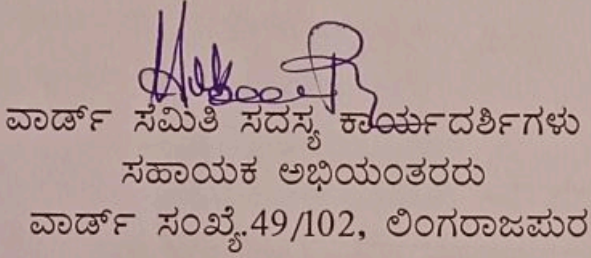 ವಾರ್ಡ್ ಸಮಿತಿ ಸದಸ್ಯ ಕಾರ್ಯದರ್ಶಿಗಳು
ಸಹಾಯಕ ಅಭಿಯಂತರರು
ವಾರ್ಡ್ ಸಂಖ್ಯೆ.49/102, ಲಿಂಗರಾಜಪುರ